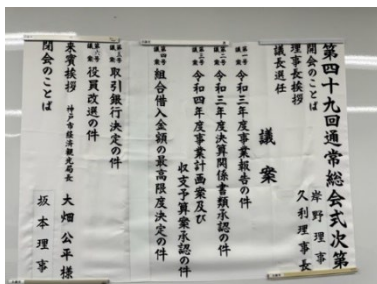 第四十九回通常総会式次第
開会のことば 岸野理事
理事長挨拶 久利理事長
議長選任
議案
第一号議案 令和三年度事業報告の件
第二号議案 令和三年度決算関係書類承認の件
第三号議案 令和四年度事業計画案及び
収支予算案承認の件
第四号議案 組合借入金額の最高限度決定の件
第五号議案 取引銀行決定の件
第六号議案 役員改選の件
来賓挨拶 神戸市経済観光局長 大畑公平様
閉会のことば 坂本理事